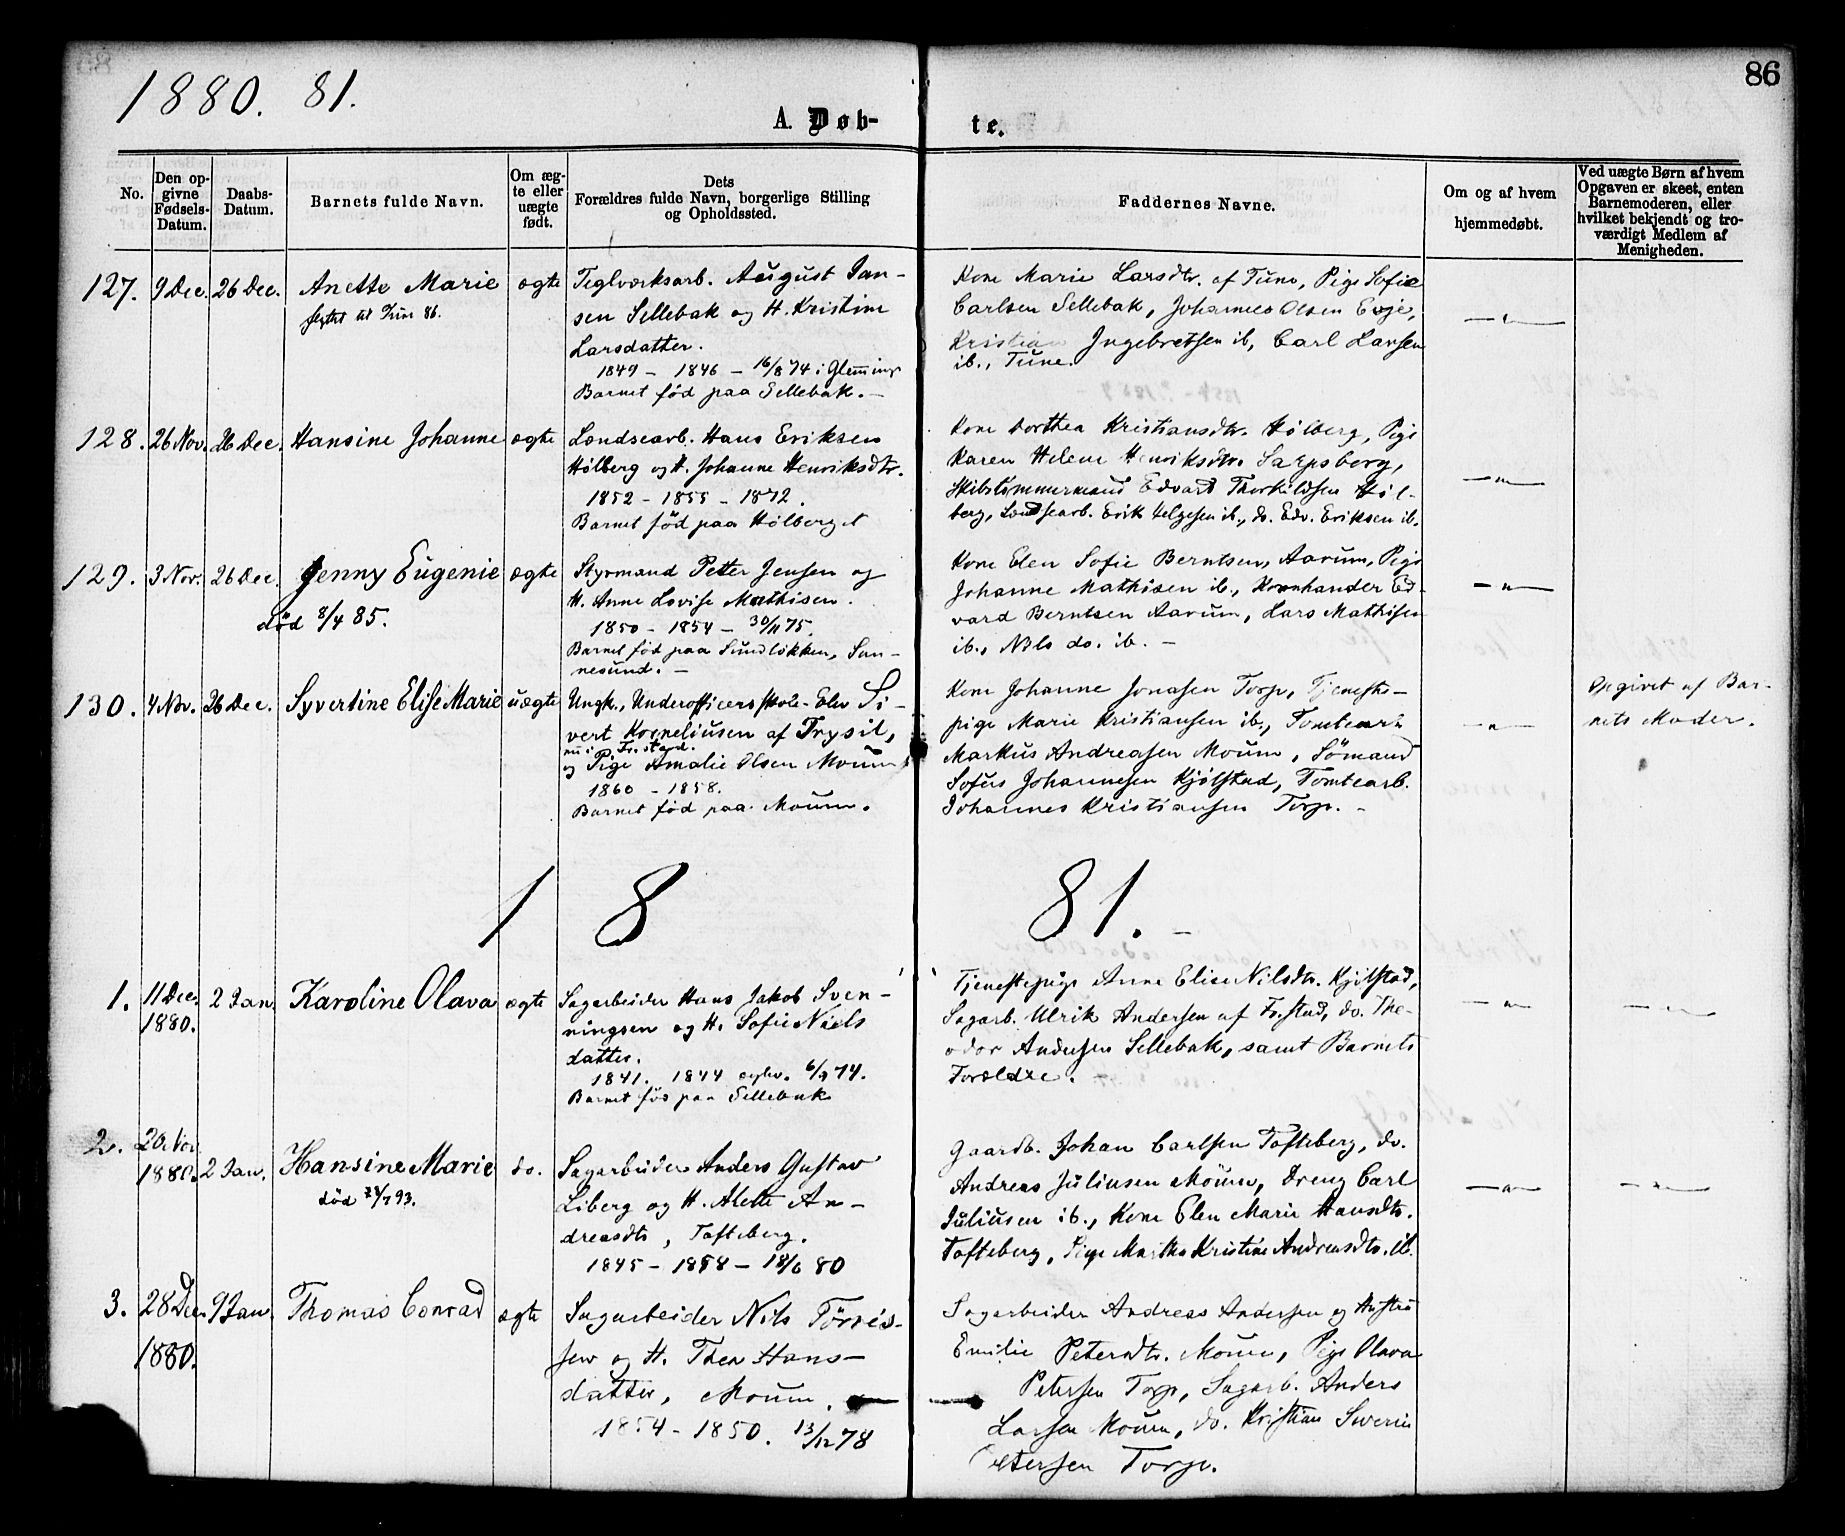 1880. 81.
86
A. Døb-
te.
No.
Den op-
givne
Fødsels-
Datum.
Daabs-
Datum.
Barnets fulde Navn.
Om æg-
te eller
uægte
født.
Dets
Forældres fulde Navn, borgerlige Stilling
og Opholdssted.
Faddernes Navne.
Om og af hvem
hjemmedøbt.
Ved uægte Børn af hvem
Opgaven er skeet, enten
Barnemoderen, eller
hvilket bekjendt og tro-
værdigt Medlem af
Menigheden.
127. 9 Dec. 26 Dec. Anette Marie ægte
flyttet til Tune 86.
Teglværksarb. August Jan-
sen Sellebak og H. Kristine
Larsdatter.
1849 - 1846 - 16/8 74 i Glemminge
Barnet fød paa Sellebak. -
Kone Marie Larsdtr. af Tune, Pige Sofie
Carlsen Sellebak, Johannes Olsen Evje,
Kristian Ingebretsen ib, Carl Larsen
ib., Tune.
—"—
128. 26 Nov. 26 Dec. Hansine Johanne ægte
Londsearb. Hans Eriksen
Hólberg og H. Johanne Henriksdtr.
1852 - 1855 - 1872.
Barnet fød paa Hólberget
Kone Dorthea Kristiansdtr. Hólberg, Pige
Karen Helene Henriksdtr. Sarpsborg,
Skibstømmermand Edvard Thorkildsen Hól-
berg, Londsearb. Erik Helgesen ib., do. Edv. Eriksen ib.
—"—
129. 3 Nov. 26 Dec. Jenny Eugenie ægte
død 8/4 85.
Styrmand Petter Jensen og
H. Anne Lovise Mathisen.
1850 - 1854 - 30/11 75.
Barnet fød paa Sundløkken, San-
nesund. -
Kone Elen Sofie Berntsen, Aarum, Pige
Johanne Mathisen ib., Kornhandler Ed-
vard Berntsen Aarum, Lars Mathisen
ib., Nils do. ib. -
—"—
130. 4 Nov. 26 Dec. Syvertine Elise Marie uægte
Ungk., Underofficersskole-Elev Si-
vert Korneliusen af Trysil,
nu i Fr.stad.
og Pige Amalie Olsen Moum
1860 - 1858.
Barnet fød paa Moum.
Kone Johanne Jonasen Torp, Tjeneste-
pige Marie Kristiansen ib., Tomtearb.
Markus Andreassen Moum, Sömand
Sofus Johannesen Kjólstad, Tomtearb.
Johannes Kristiansen Torp. -
—"—
Opgivet af Bar-
nets Moder.
1 8 81. -
1. 11 Dec. 2 Jan. Karoline Olava ægte
1880.
Sagarbeider Hans Jakob Sven-
ningsen og H. Sofie Niels
datter.
1841. 1844 ægtev. 6/9 74.
Barnet fød paa Sellebak
Tjenestepige Anne Elise Nilsdtr. Kjólstad,
Sagarb. Ulrik Andersen af Fr.stad, do. The-
odor Andersen Sellebak, samt Barnets
Forældre.
—"— —"—
2. 20 Nov
1880. 2 Jan. Hansine Marie do.
død 93.
Sagarbeider Anders Gustav
Liberg og H. Alette An-
dreasdtr, Tofteberg.
1845 - 1858 - 18/6 80
Gaardb. Johan Carlsen Tofteberg, do.
Andreas Juliusen Moum, Dreng Carl
Juliusen ib., Kone Elen Marie Hansdtr.
Tofteberg, Pige Martha Kristine Andreasdtr. ib.
—"— —"—
3. 28 Dec. 9 Jan. Thomas Conrad ægte
1880.
Sagarbeider Nils Törris-
sen og H. Thea Hans-
datter, Moum.
1854 - 1850. 13/12 78
Sagarbeider Andreas Andersen og Hustru
Emilie Petersdtr. Moum, Pige Olava
Petersen Torp, Sagarb. Anders
Larsen Moum, do. Kristian Severin
Petersen Torp.